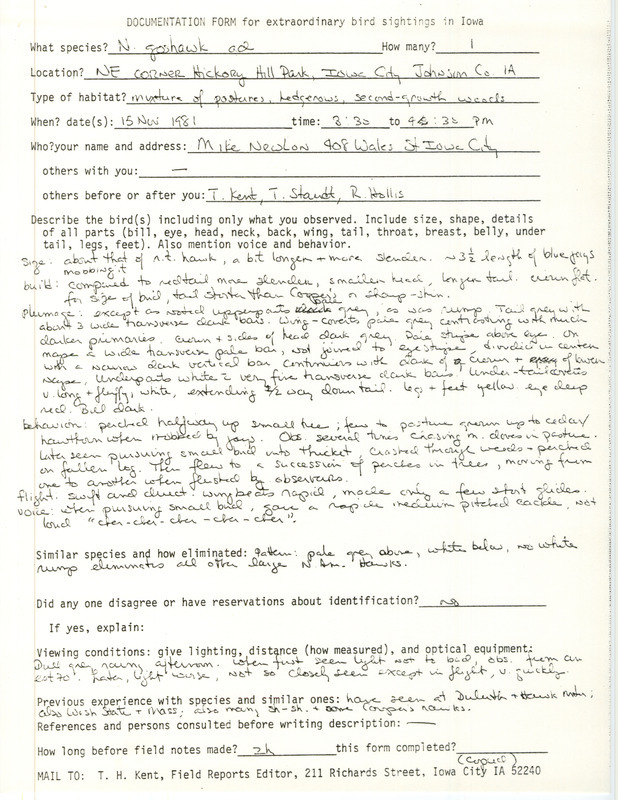 DOCUMENTATION FORM for extraordinary bird sightings in Iowa
What species? N. goshawk ad How many? 1
Location? NE corner Hickory Hill Park, Iowa City Johnson Co. IA
Type of habitat? mixture of pastures, hedgerows, second-growth woods
When? date(s): 15 Nov 1981 time: 3:30 to 4:30 pm
Who? your name and address: Mike Newlon 408 Wales St Iowa City
others with you: —
others before or after you: T. Kent, T. Staudt, R. Hollis
Describe the bird(s) including only what you observed. Include size, shape, details
of all parts (bill, eye, head, neck, back, wing, tail, throat, breast, belly, under
tail, legs, feet). Also mention voice and behavior.
Size: about that of r.t. hawk, a bit longer + more slender. ~3½ length of bluejays
mobbing it
build: compared to redtail more slender, smaller head, longer tail. crown flat.
for size of bird, tail shorter than Coopers or sharp-shin.
plumage: except as noted upperparts pale grey, as was rump. Tail grey with
about 3 wide transverse dark bars. Wing-coverts pale grey contrasting with much
darker primaries. crown + sides of head dark grey. Pale stripe above eye. On
nape a wide transverse pale bar, not joined to eyestripe + divided in center
with a narrow dark vertical bar continuous with dark of crown + of lower
nape. Underparts white with very fine transverse dark bars. Under-tail coverts
v. long + fluffy, white, extending ½ way down tail. legs + feet yellow. eye deep
red. Bill dark.
behavior: perched halfway up small tree; flew to pasture ground up to cedar/
hawthorn when mobbed by jays. Obs. several times chasing m. doves in pasture.
Later seen pursuing small bird into thicket, crashed through weeds + perched
on fallen log. Then flew to a succession of perches in trees, moving from
one to another when flushed by observers.
flight: swift and direct. wingbeats rapid, made only a few short glides.
voice: when pursuing small bird, gave a rapid medium pitched cackle, not
loud "cher-cher-cher-cher-cher".
Similar species and how eliminated: Pattern: pale grey above, white below, no white
rump eliminates all other large N Am. Hawks.
Did any one disagree or have reservations about identification? no
If yes, explain:
Viewing conditions: give lighting, distance (how measured), and optical equipment:
Dull grey rainy afternoon. When first seen light not to bad, obs. from an
est 70'. Later, light worse, not so closely seen except in flight, v. quickly.
Previous experience with species and similar ones: have seen at Duluth + Hawk Mtn;
also Wash State + Mass; also many Sh-sh. + some Coopers hawks.
References and persons consulted before writing description: —
How long before field notes made? 2h this form completed?
(copied)
MAIL TO: T. H. Kent, Field Reports Editor, 211 Richards Street, Iowa City IA 52240